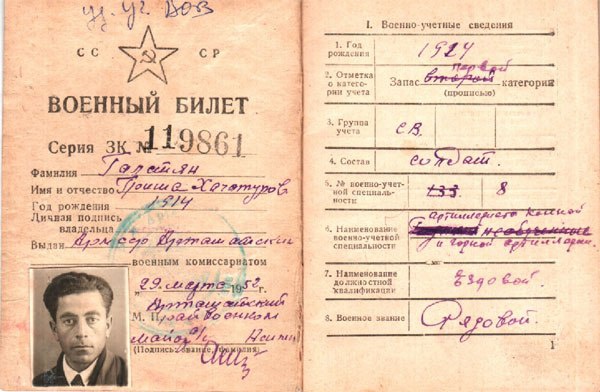 уд. уч. ВОВ
СС СР
ВОЕННЫЙ БИЛЕТ
Серия ЗК № 119861
Фамилия Галстян
Имя и отчество Гриша Хачатуров.
Год рождения 1914
Личная подпись
владельца
Выдан Армсср Арташатским
военным комиссариатом
„29" марта 1952 г.
Арташатский
М. П. Райвоенком
майор а/с
(Подпись, звание, фамилия)
I. Военно-учетные сведения
1. Год рождения 1924
2. Отметка о категории учета
первой
Запас второй категории
(прописью)
3. Группа учета СВ.
4. Состав солдат.
5. № военно-учетной специальности 133 8
6. Наименование военно-учетной специальности
артиллериста конной
необученные
и горной артиллерии.
7. Наименование должностной квалификации Ездовой.
8. Военное звание Рядовой.
1